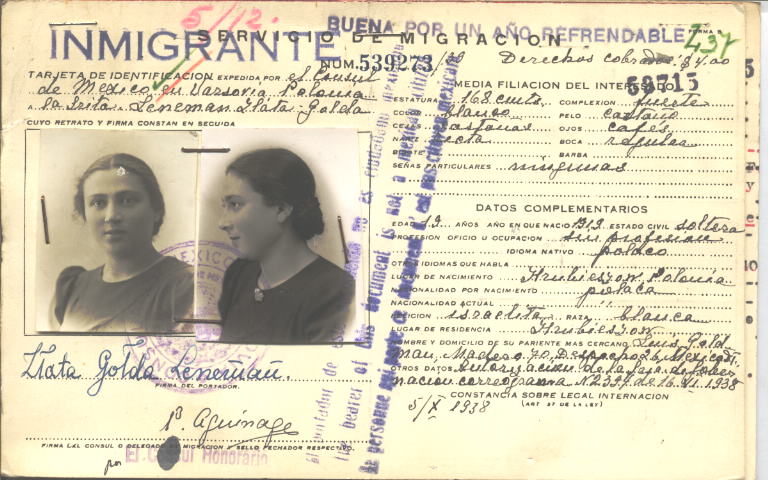 5/12.
BUENA POR UN AÑO REFRENDABLE
INMIGRANTE
SERVICIO DE MIGRACION
FORMA
237
NUM. 539273
Derechos cobrados $4.00
59715
TARJETA DE IDENTIFICACION EXPEDIDA POR el Consul
de Mexico en Varsovia Polonia
a la Srita. Leneman Zlata-Golda
CUYO RETRATO Y FIRMA CONSTAN EN SEGUIDA
MEXICO
Zlata Golda Leneman.
FIRMA DEL PORTADOR.
FIRMA DEL CONSUL O DELEGADO DE MIGRACION Y SELLO FECHADOR RESPECTIVO.
por El Consul Honorario
El portador de no es ciudadano mexicano
The bearer of this document is not a mexican citizen
La personne qui porte ce document n'est pas citoyen mexicain
MEDIA FILIACION DEL INTERESADO
ESTATURA 168 cmts. COMPLEXION fuerte
COLOR blanco PELO castaño
CEJAS castañas OJOS cafés
NARIZ recta BOCA regular
BIGOTE BARBA
SEÑAS PARTICULARES ningunas
DATOS COMPLEMENTARIOS
EDAD 19 AÑOS AÑO EN QUE NACIO 1919 ESTADO CIVIL soltera
PROFESION OFICIO U OCUPACION sin profesion
IDIOMA NATIVO polaco
OTROS IDIOMAS QUE HABLA
LUGAR DE NACIMIENTO Hrubieszow Polonia
NACIONALIDAD POR NACIMIENTO polaca
NACIONALIDAD ACTUAL "
RELIGION israelita RAZA blanca
LUGAR DE RESIDENCIA Hrubieszow
NOMBRE Y DOMICILIO DE SU PARIENTE MAS CERCANO Luis Gold
man, Madero 70, Despacho 26 Mexico
OTROS DATOS Autorizacion de la de Gober
nacion correograma N 2397 de 16.VI.1938
CONSTANCIA SOBRE LEGAL INTERNACION
(ART 57 DE LA LEY)
5/X 1938